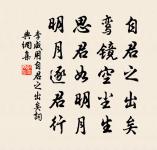 自君之出矣
鸞鏡空塵生
思君如明月
明月逐君行
李咸用自君之出矣詞
典詞集